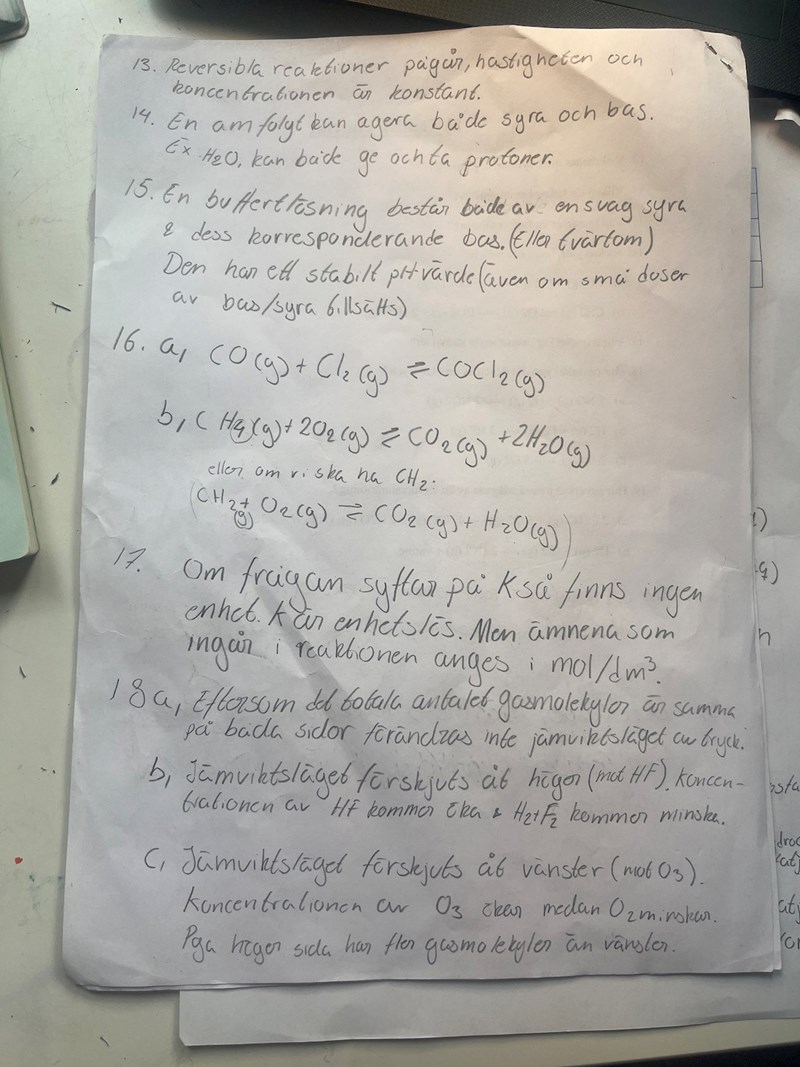 13. Reversibla reaktioner pågår, hastigheten och
koncentrationen är konstant.
14. En amfolyt kan agera både syra och bas.
Ex H2O, kan både ge och ta protoner.
15. En buffertlösning består både av en svag syra
& dess korresponderande bas. (Eller tvärtom)
Den har ett stabilt pH-värde (även om små doser
av bas/syra tillsätts)
16. a, CO(g) + Cl2(g) ⇌ COCl2(g)
b, CH4(g) + 2O2(g) ⇌ CO2(g) + 2H2O(g)
eller om vi ska ha CH2:
(CH2(g) + O2(g) ⇌ CO2(g) + H2O(g))
17. Om frågan syftar på K så finns ingen
enhet. K är enhetslös. Men ämnena som
ingår i reaktionen anges i mol/dm³.
18 a, Eftersom det totala antalet gasmolekyler är samma
på båda sidor förändras inte jämviktsläget av tryck.
b, Jämviktsläget förskjuts åt höger (mot HF). Koncen-
trationen av HF kommer öka & H2+F2 kommer minska.
c, Jämviktsläget förskjuts åt vänster (mot O3).
Koncentrationen av O3 ökar medan O2 minskar.
Pga höger sida har fler gasmolekyler än vänster.